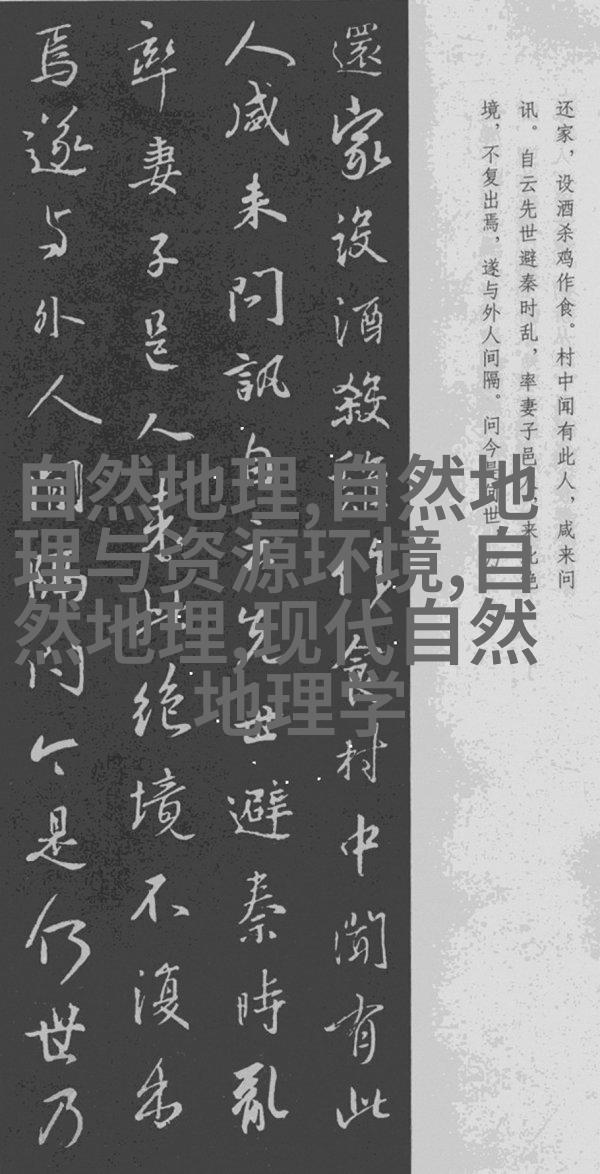 还家，设酒杀鸡作食。村中闻有此人，咸来问
讯。自云先世避秦时乱，率妻子邑人，来此绝
境，不复出焉，遂与外人间隔。问今是何世，乃
還家設酒殺雞作食村中聞有此
人咸来問訊自云先世避秦時亂
率妻子邑人来此绝境不復出
焉遂与外人間隔問今是何世乃
自然地理,自然地
理与资源环境,自
然地理,现代自然
地理学